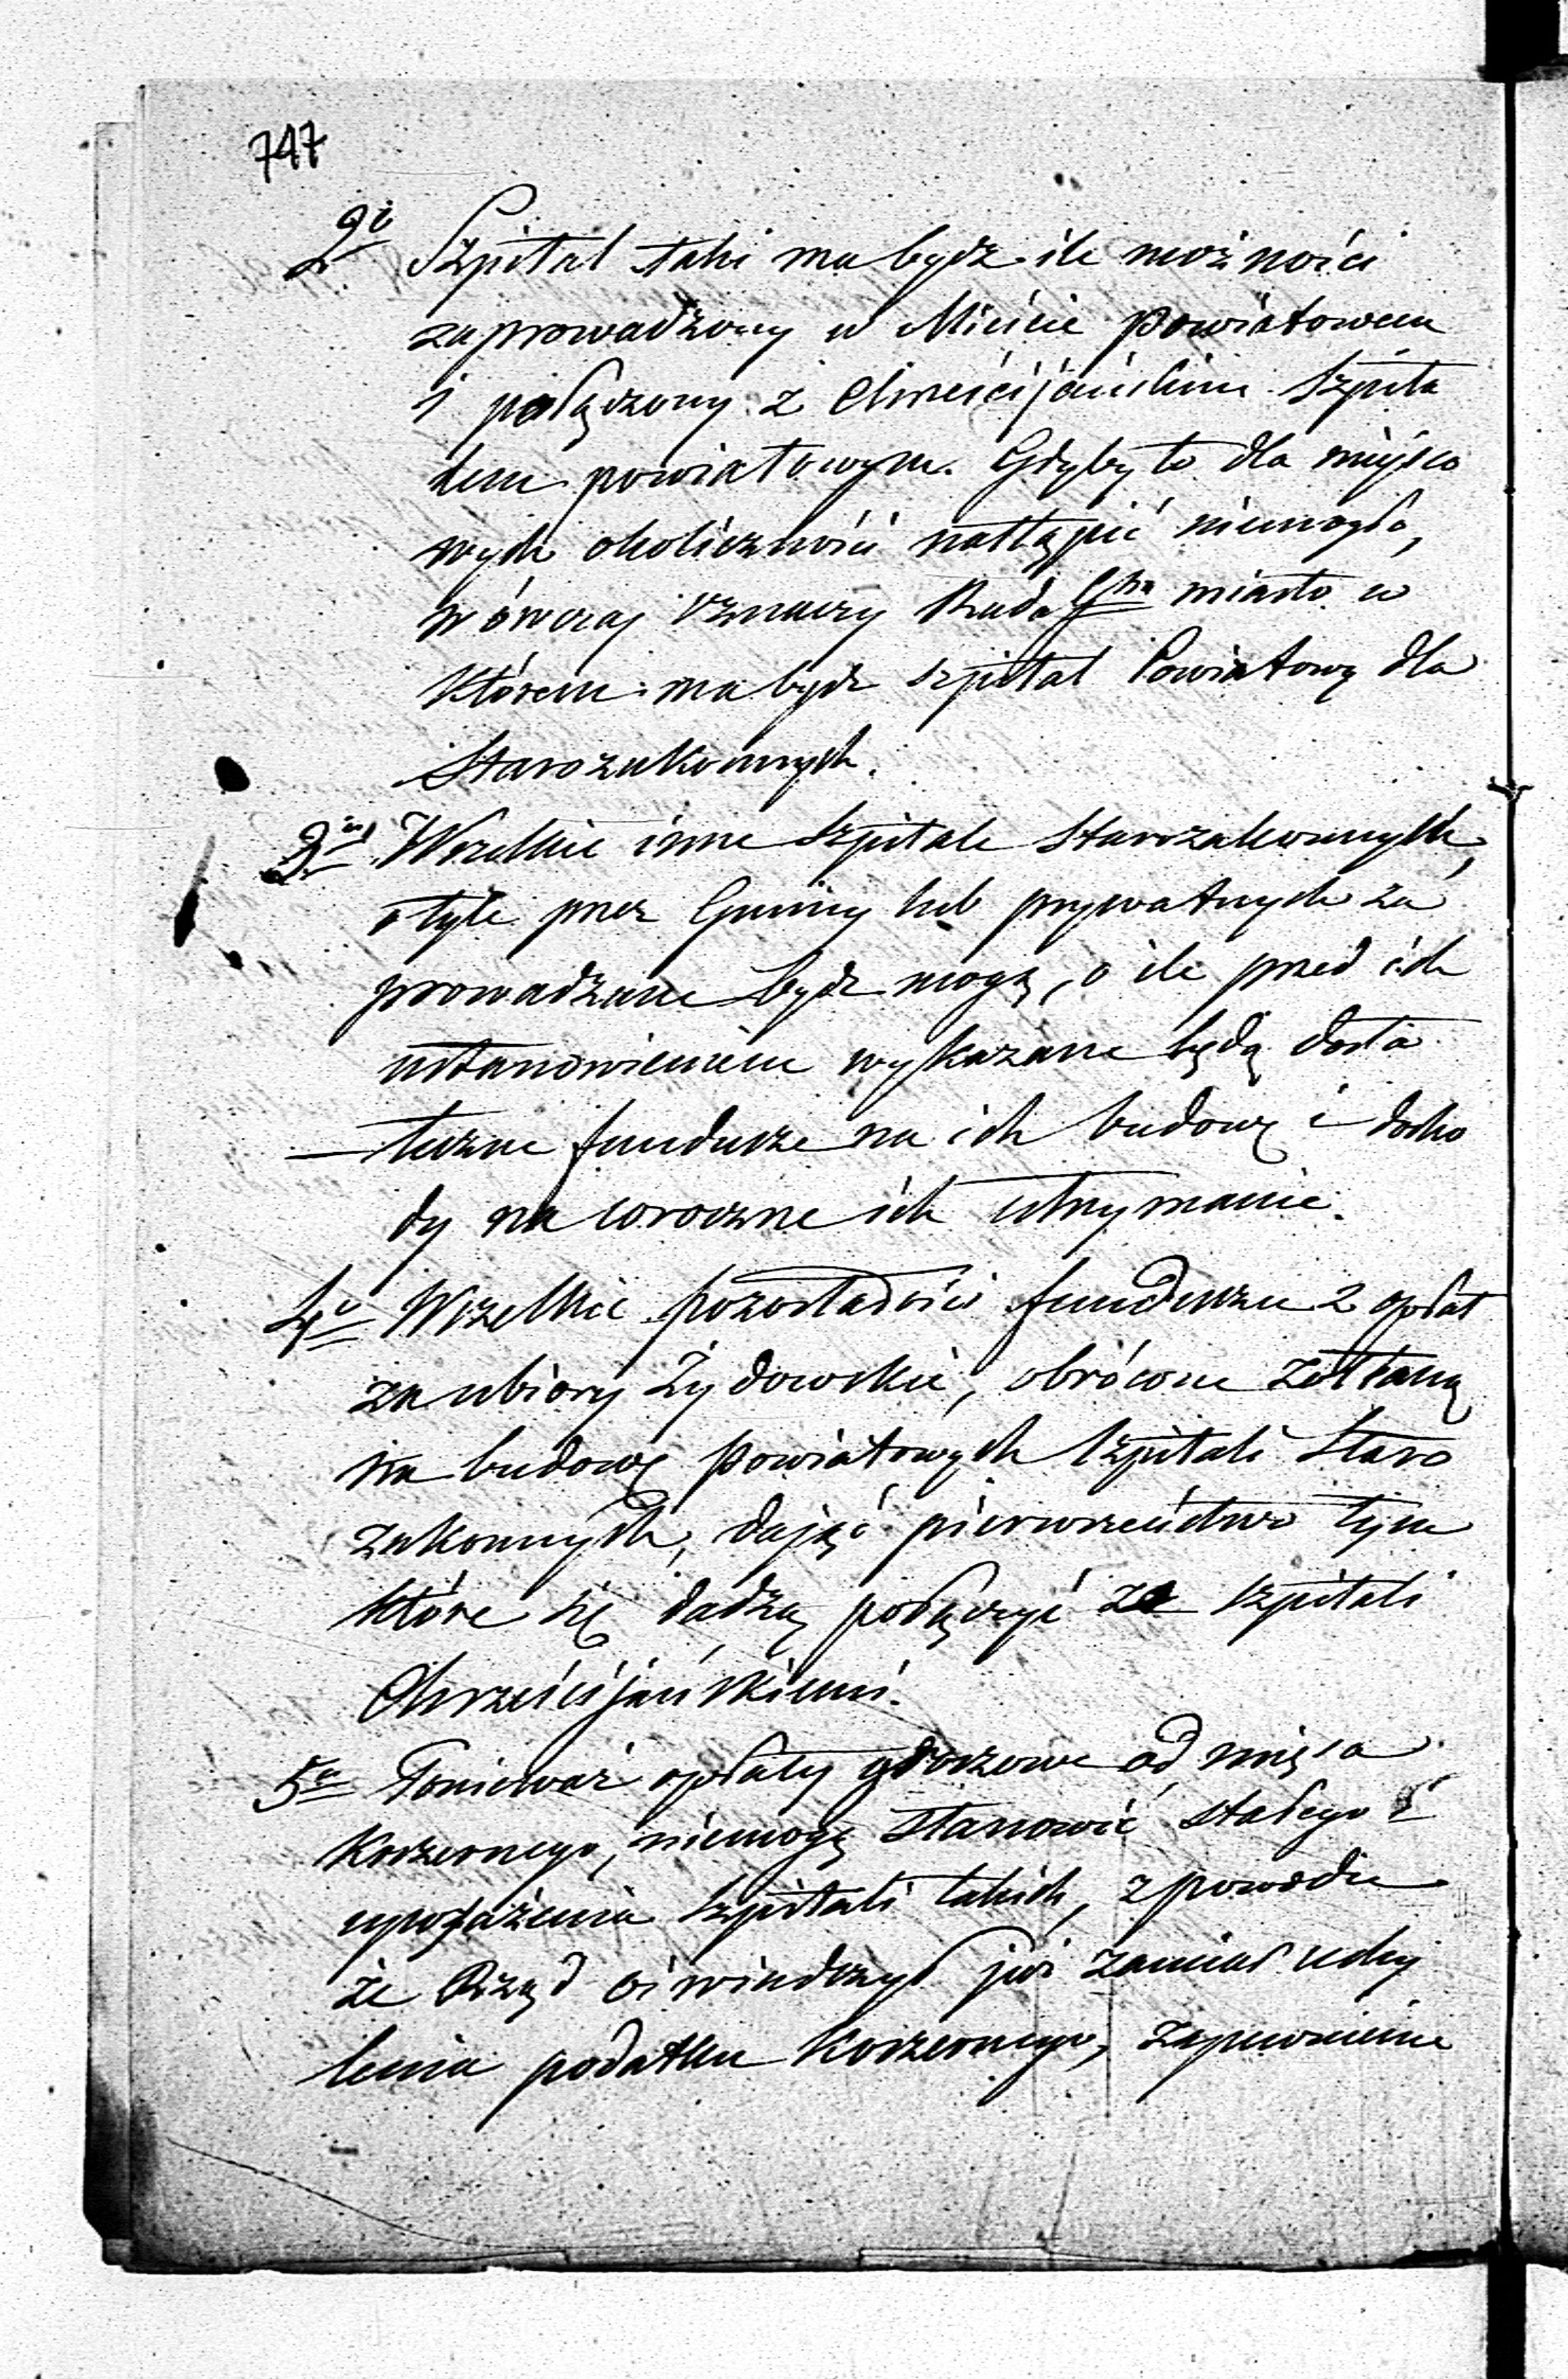 747
2e Szpital taki ma bydz ile możności
zaprowadzony w Mieście powiatowem
i połączony z Chrześcijańskim Szpita
lem powiatowym. Gdyby to dla miejsco
wych okoliczności nastąpić niemogło,
wówczas oznaczy Rada Gna miasto w
którem ma bydz szpital Powiatowy dla
Starozakonnych.
3e Wszelkie inne Szpitale Starozakonnych,
o tyle przez Gminy lub prywatnych za
prowadzane bydz mogą, o ile przed ich
ustanowieniem wykazane będą dosta
teczne fundusze na ich budowę i docho
dy na coroczne ich utrzymanie.
4e Wszelkie pozostałości funduszu z opłat
za ubiory Żydowskie, obrócone zostaną
na budowę powiatowych Szpitali Staro
zakonnych, dając pierwszeństwo tym
które się dadzą połączyć ze szpitali
Chrześcijańskiemi.
5e Ponieważ opłaty groszowe od mięsa
koszernego, niemogą stanowić stałego
uposażenia Szpitali takich, z powodu
że Rząd oświadczył już zamiar uchy
lenia podatku koszernego, zapewnienie